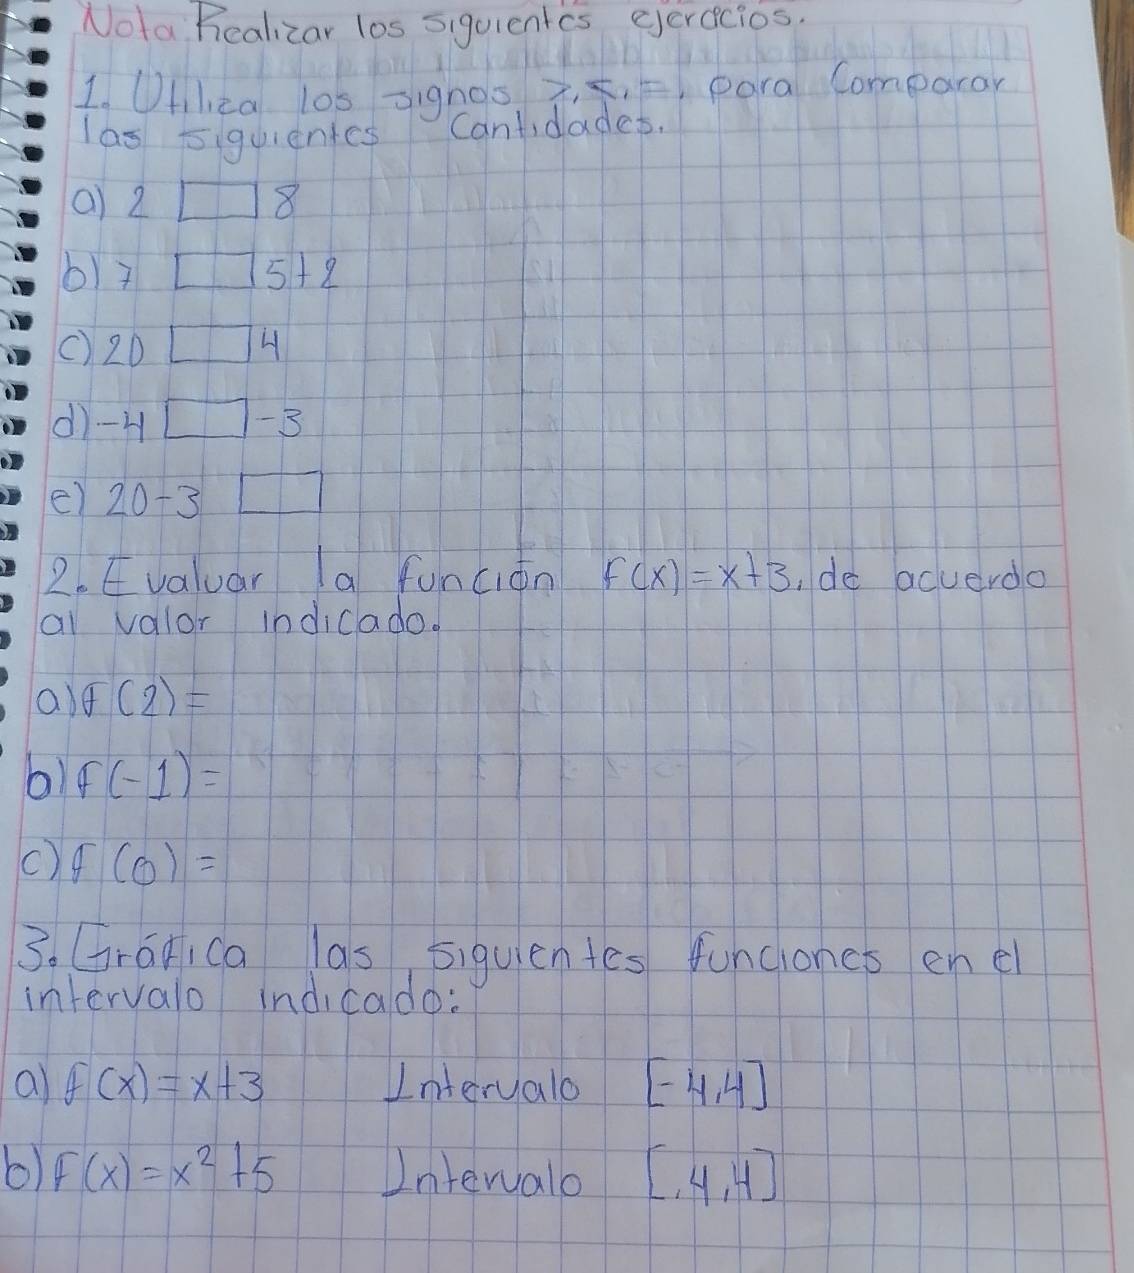 Nota: Realizar los siguientes ejercicios.
1. Utiliza los signos >, <, =, para Comparar
las siguientes Cantidades.
a) 2 □ 8
b) 7 □ 5+2
c) 20 □ 4
d) -4 □ -3
e) 20-3 □
2. Evaluar la función f(x)=x+3, de acuerdo
al valor indicado.
a) f(2)=
b) f(-1)=
c) f(0)=
3. Gráfica las siguientes funciones en el
intervalo indicado:
a) f(x)=x+3 Intervalo [-4,4]
b) f(x)=x²+5 Intervalo [.4,4]